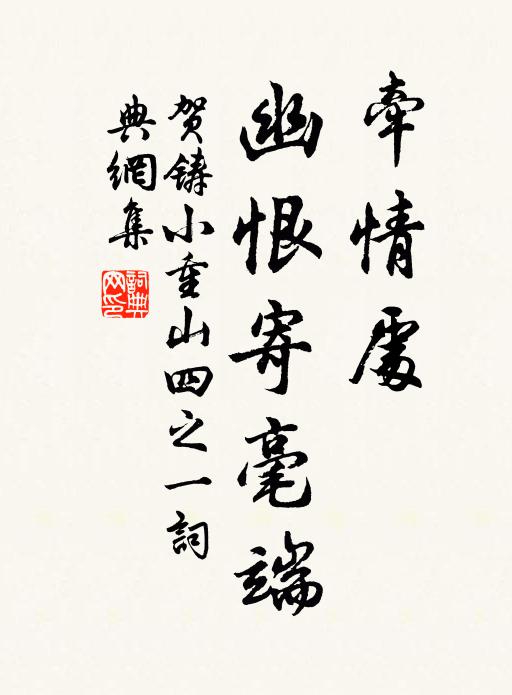 牽情處
幽恨寄毫端
賀鑄小重山四之一詞
典網集
詞典網印